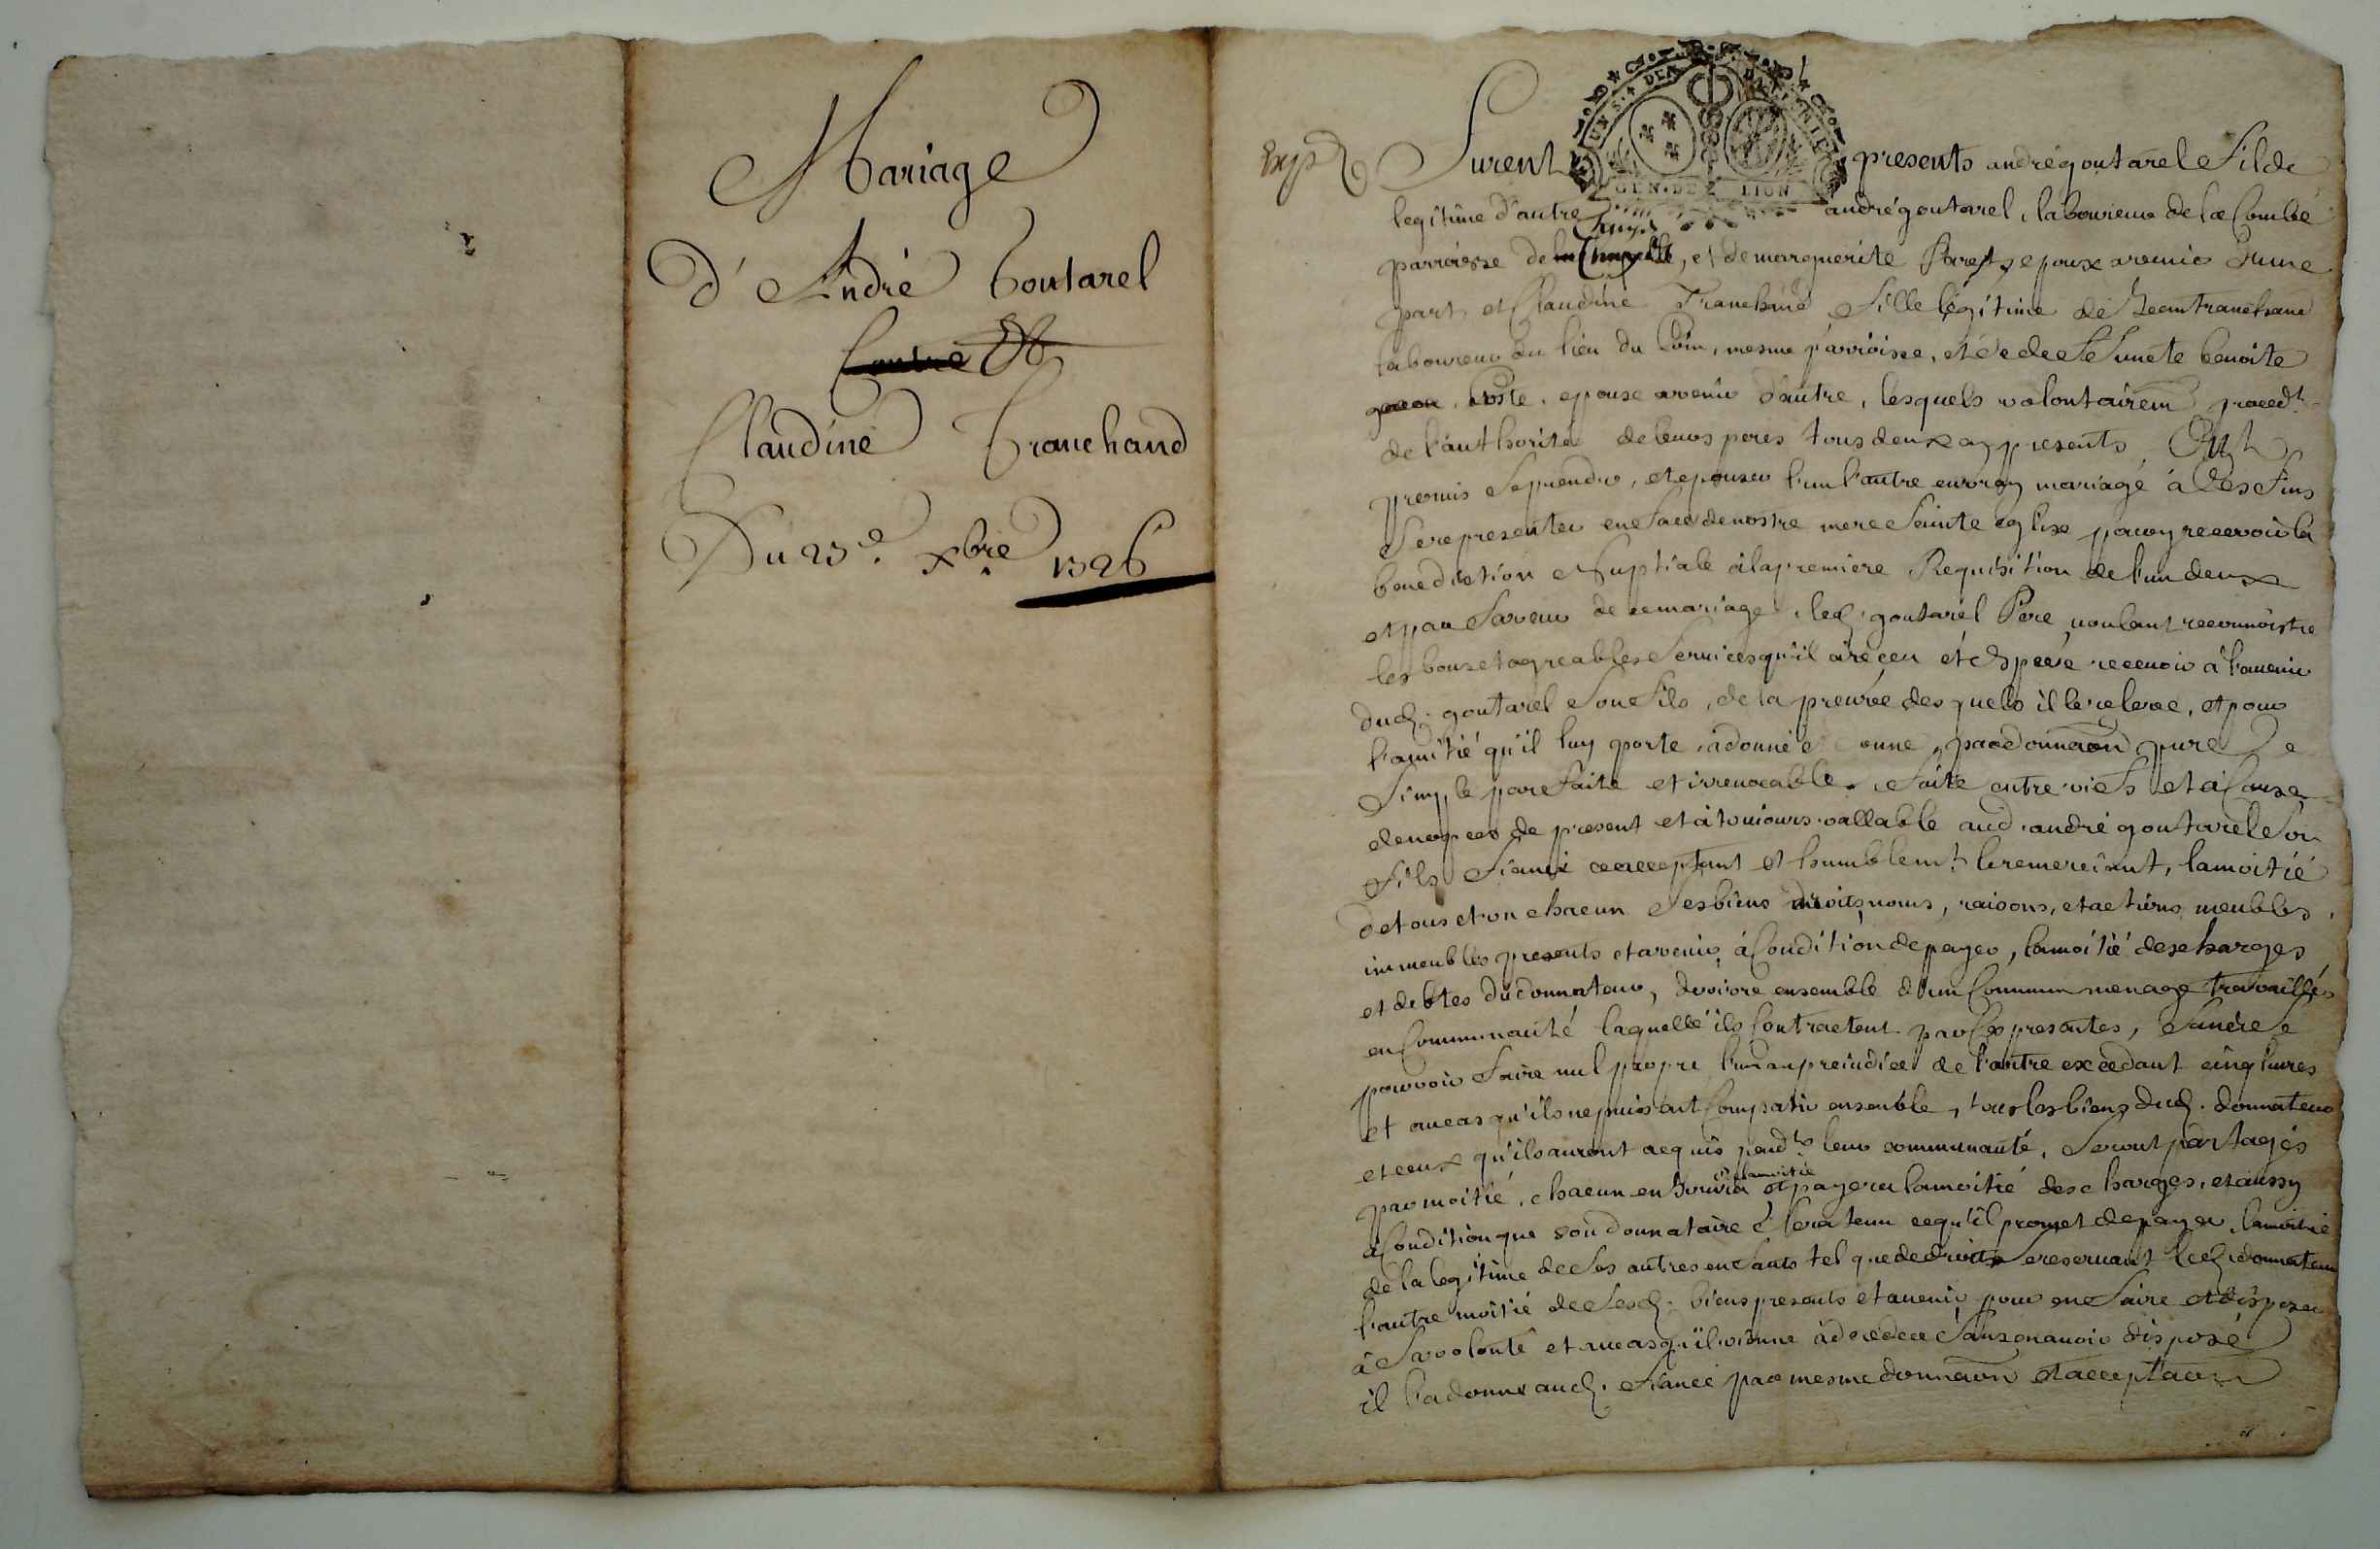 Mariage
d'André Goutarel
Contre Et
Claudine Tranchand
Du 23e. xbre 1726
Exp
GEN. DE LION
Furent presents andré goutarel fils de
legitime d'autre andré goutarel, laboureur de la Combe
parroisse de la Chapelle, et de marguerite epoux avenir d'une
part et Claudine Tranchand fille légitime de Jean tranchand
laboureur du lieu du mesme parroisse, et de deffunete benoite
Coste, epouse avenir d'autre, lesquels volontairem procedt.
de l'authorité de leurs peres tous deux cy presents Ont
promis se prendre, et epouser l'un l'autre en vray mariage à ces fins
se representer en face de nostre mere Sainte eglise pour y recevoir la
benediction Nuptiale à la premiere Requisition de l'un deux
et par faveur de ce mariage, led. goutarel Pere voulant reconnoistre
les bons et agreables services qu'il a reçeu et espere recevoir à l'avenir
dud. goutarel son fils, de la preuve des quels il le releve, et pour
l'amitié qu'il luy porte, a donné et donne, par donnaon pure Se
Simple parfaite et irrevocable, faite entre vifs et à Cause
de nopces de present et à toujours vallable aud. andré goutarel son
fils fiancé ce acceptant et humblemt. le remerciant, la moitié
de tous et un chacun ses biens droits, noms, raisons, et actions meubles,
immeubles presents et avenir, à Condition de payer, la moitié des charges
et debtes du donnateur, de vivre ensemble d'un Commun menage travailler
en Communauté laquelle ils Contractent par Ces presentes, sans se
pouvoir faire nul propre l'un au prejudice de l'autre excedant cinq livres
et au cas qu'ils ne puissent Compatir ensemble, tous les biens dud. donnateur
et ceux qu'ils auront acquis pendt. leur communauté, seront partagés
par moitié, chacun en Jouira la moitié et payera la moitié des charges, et aussy
à Condition que son donnataire sera tenu ce qu'il promet de payer, la moitié
de la legitime de ses autres enfants tel que de droit, se reservant led. donnateur
l'autre moitié de sesd. biens presents et avenir pour en faire et disposer
à sa volonté et au cas qu'il vienne à deceder sans en avoir disposé
il l'a donne aud. fiancé par mesme donnaon et acceptaon